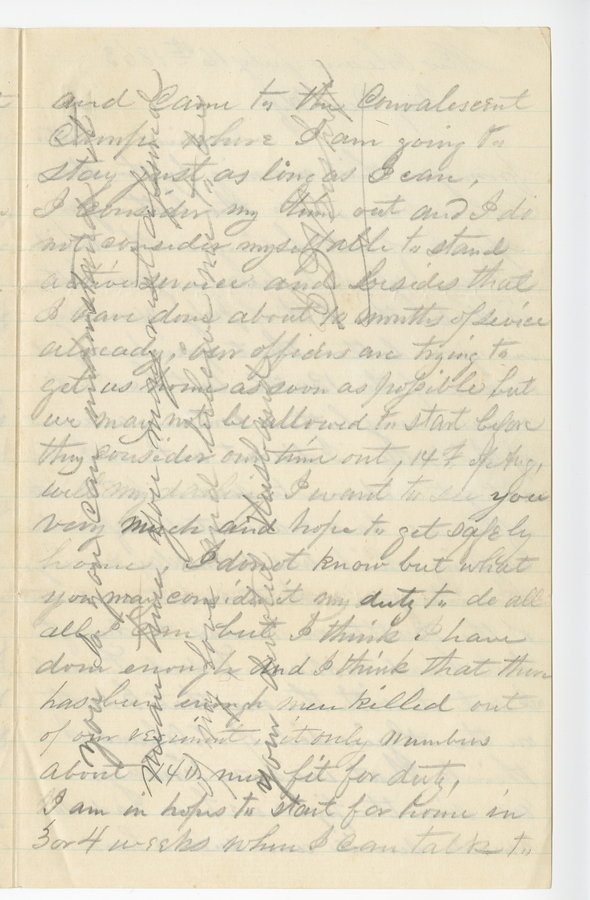 and Came to the Convalescent
Camp where I am going to
stay just as long as I can,
I consider my time out and I do
not consider myself able to stand
active service and besides that
I have done about 10 months of sevice
already, our officers are trying to
get us home as soon as possible but
we may not be allowed to start before
they consider our time out, 14th of Aug,
well my darling I want to see you
very much and hope to get safely
home, I do not know but what
you may consider it my duty to do all
all I can but I think I have
done enough and I think that there
has been enough men killed out
of our regiment it only numbers
about 140 men fit for duty,
I am in hopes to start for home in
3 or 4 weeks when I can talk to
you so you can understand
mean time you must
my love and believe me to
your devoted Husband